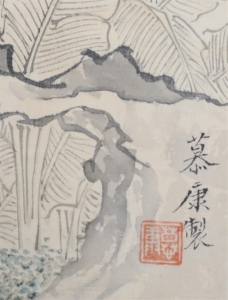 慕康製